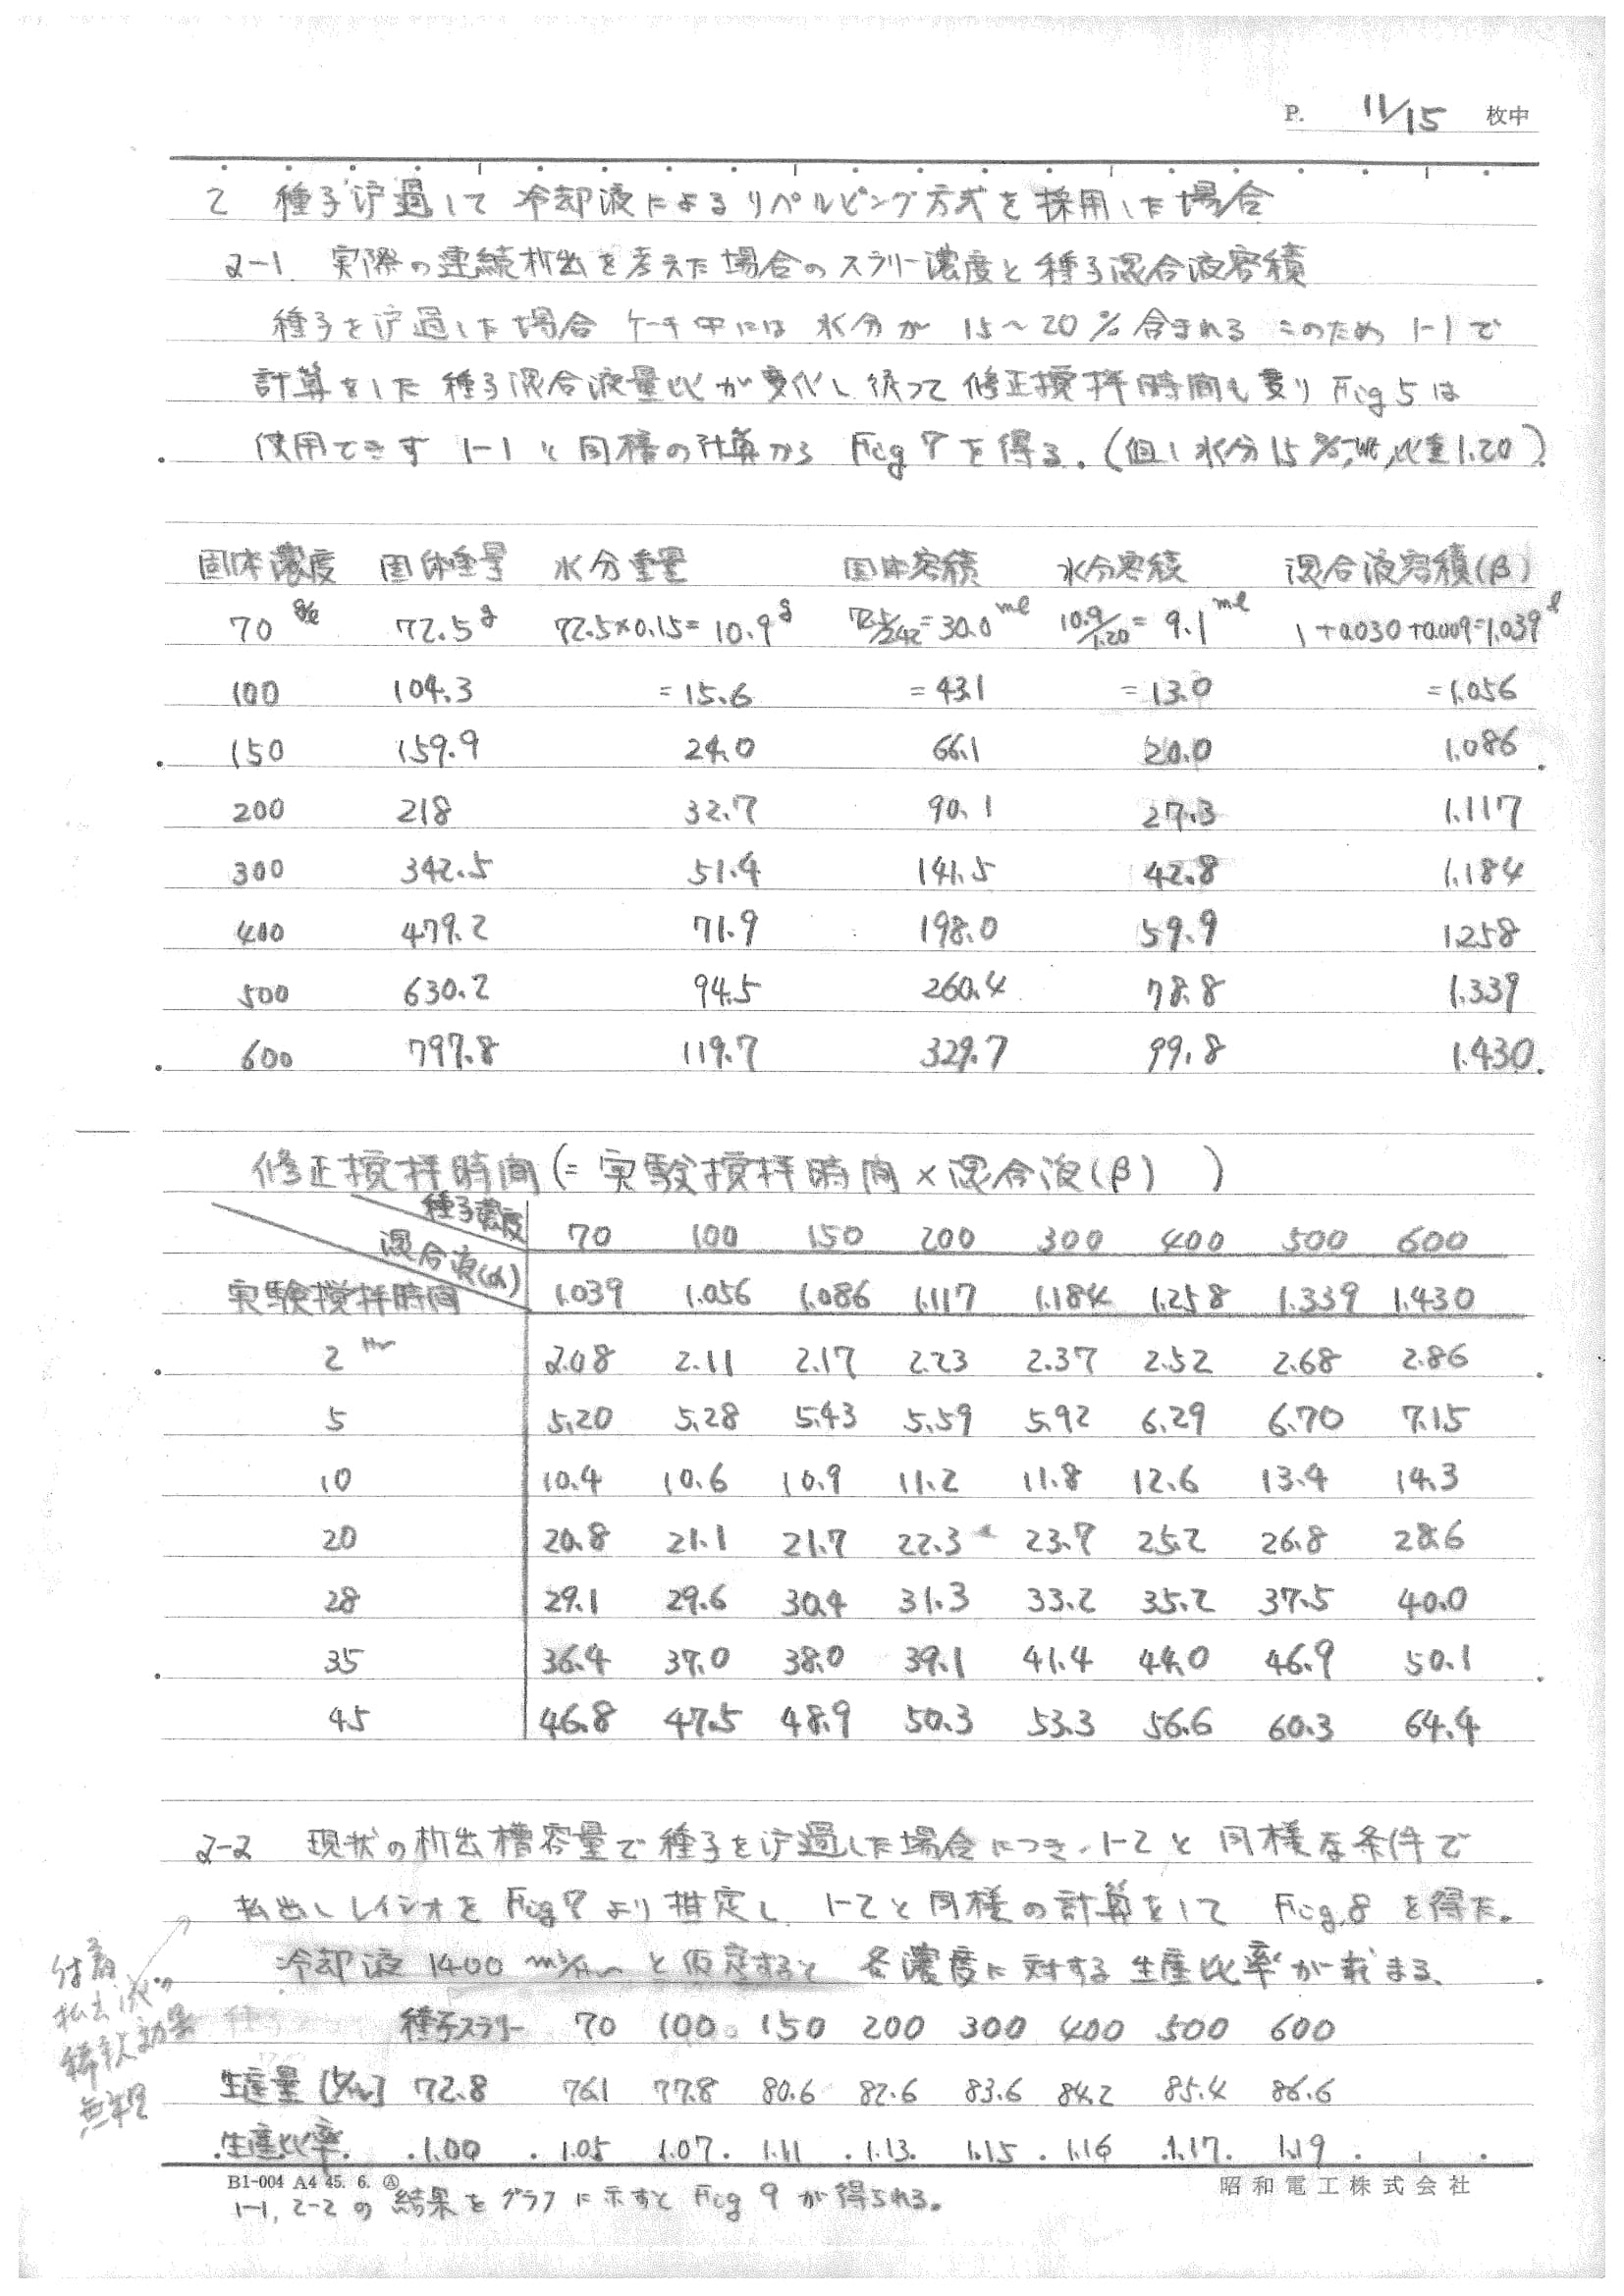 P. 11/15 枚中
2 種子沪過して冷却液によるリパルピング方式を採用した場合
2-1 実際の連続析出を考えた場合のスラリー濃度と種子混合液容積
種子を沪過した場合 ケーキ中には 水分が 15~20%含まれる このため 1-1で
計算をした 種子混合液量比が変化し従って修正撹拌時間も変り Fig 5は
使用できず 1-1と同様の計算から Fig 7を得る。(但し水分15%wt,比重1.20)
固体濃度 固体重量 水分重量 固体容積 水分容積 混合液容積(β)
70 g/l 72.5g 72.5×0.15=10.9g 72.5/2.42=30.0ml 10.9/1.20=9.1ml 1+0.030+0.009=1.039l
100 104.3 =15.6 =43.1 =13.0 =1.056
150 159.9 24.0 66.1 20.0 1.086
200 218 32.7 90.1 27.3 1.117
300 342.5 51.4 141.5 42.8 1.184
400 479.2 71.9 198.0 59.9 1.258
500 630.2 94.5 260.4 78.8 1.339
600 797.8 119.7 329.7 99.8 1.430
修正撹拌時間(=実験撹拌時間×混合液(β) )
種子濃度 70 100 150 200 300 400 500 600
混合液(α)
実験撹拌時間 1.039 1.056 1.086 1.117 1.184 1.258 1.339 1.430
2 Hr 2.08 2.11 2.17 2.23 2.37 2.52 2.68 2.86
5 5.20 5.28 5.43 5.59 5.92 6.29 6.70 7.15
10 10.4 10.6 10.9 11.2 11.8 12.6 13.4 14.3
20 20.8 21.1 21.7 22.3 23.7 25.2 26.8 28.6
28 29.1 29.6 30.4 31.3 33.2 35.2 37.5 40.0
35 36.4 37.0 38.0 39.1 41.4 44.0 46.9 50.1
45 46.8 47.5 48.9 50.3 53.3 56.6 60.3 64.4
2-2 現状の析出槽容量で種子を沪過した場合につき、1-2と同様な条件で
払出しレイシオをFig 7より推定し 1-2と同様の計算をして Fig.8を得た。
冷却液 1400 m³/Hrと仮定すると 各濃度に対する生産比率が求まる。
払出液
無視
種子スラリー 70 100 150 200 300 400 500 600
生産量 [t/Hr] 72.8 76.1 77.8 80.6 82.6 83.6 84.2 85.4 86.6
生産比率 1.00 1.05 1.07 1.11 1.13 1.15 1.16 1.17 1.19
B1-004 A4 45. 6. Ⓐ 昭和電工株式会社
1-1, 2-2の結果をグラフに示すと Fig 9が得られる。